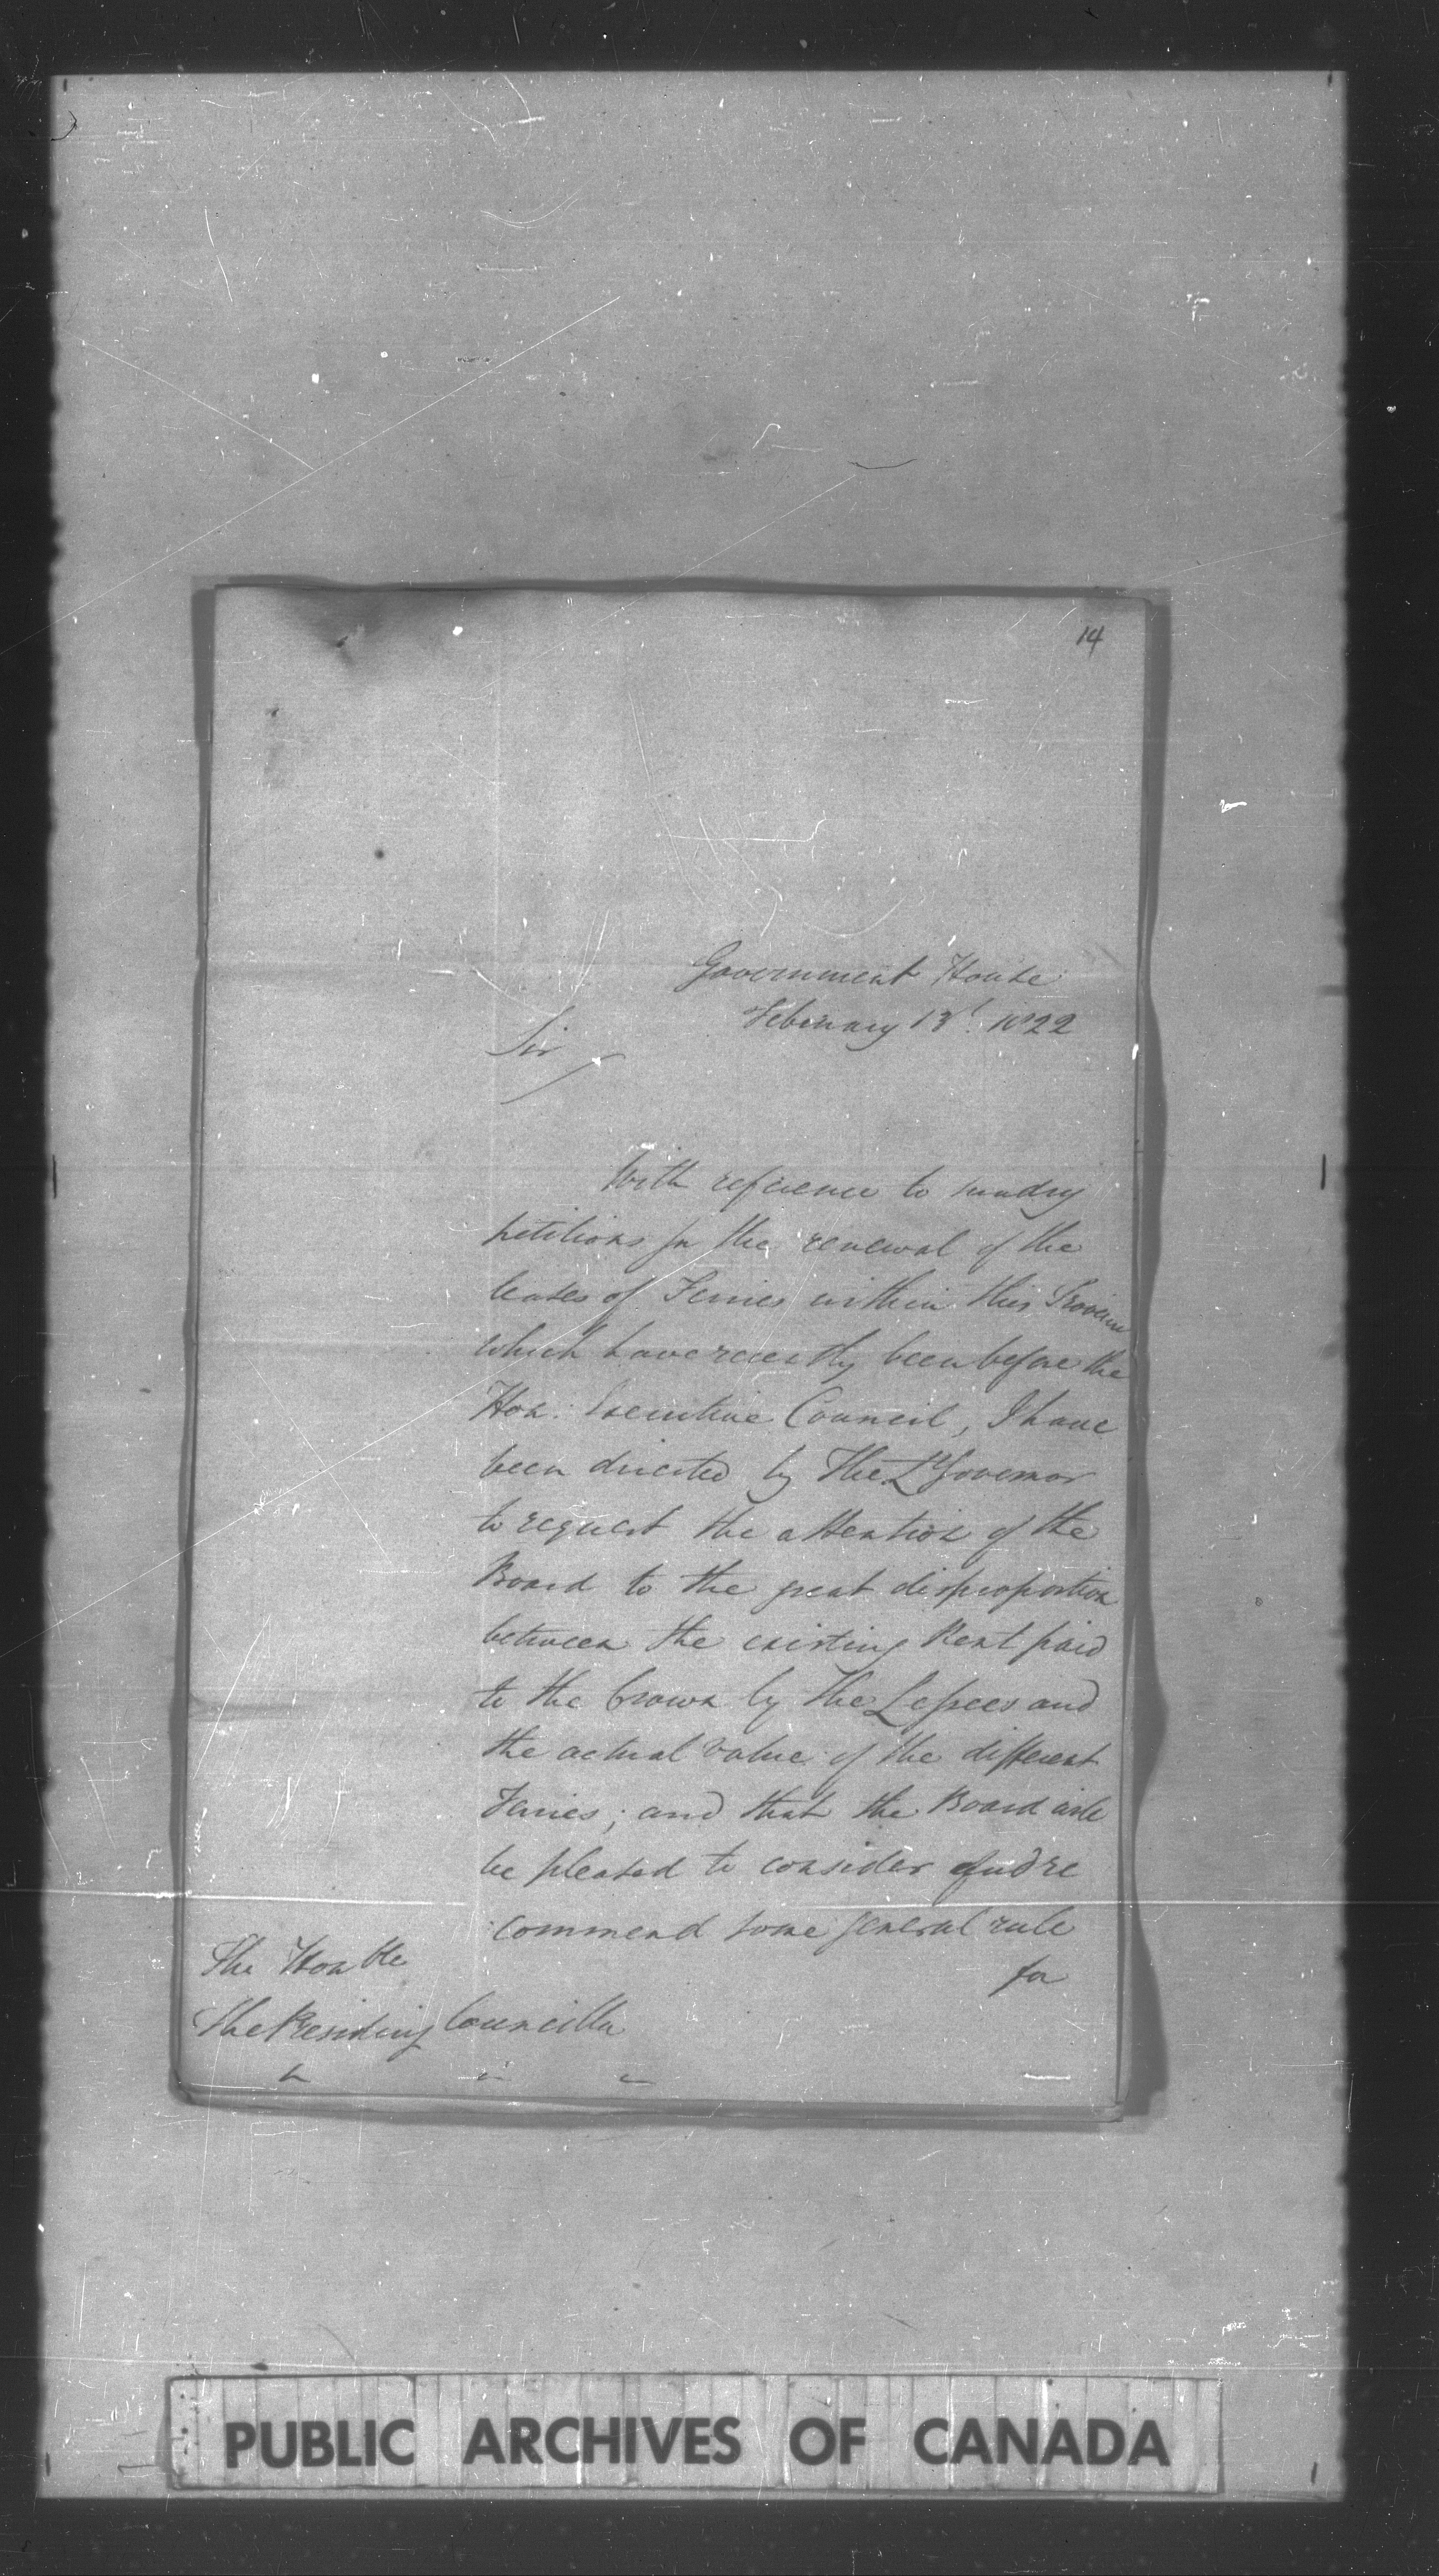 14
Government House
February 13th. 1822
Sir
With reference to sundry
petitions for the renewal of the
leases of Ferries within this Province
which have recently been before the
Hon: Executive Council, I have
been directed by The Lt Governor
to request the attention of the
Board to the great disproportion
between the existing Rent paid
to the Crown by the Lessees and
the actual value of the different
Ferries; and that the Board will
be pleased to consider and re
commend some general rule
for
The Honble
The Presiding Councillor
PUBLIC ARCHIVES OF CANADA